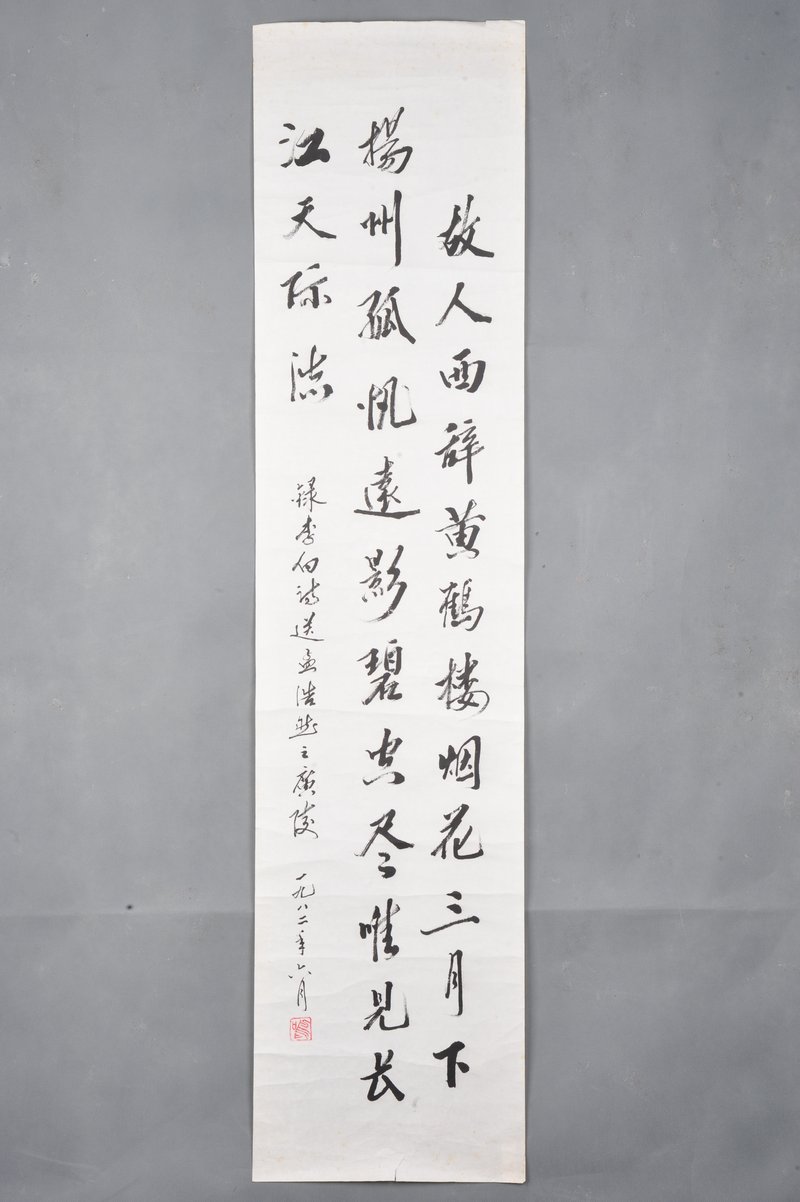 故人西辞黄鹤楼烟花三月下
揚州孤帆遠影碧空尽唯見长
江天际流
録李白詩送孟浩然之廣陵
一九八二年六月